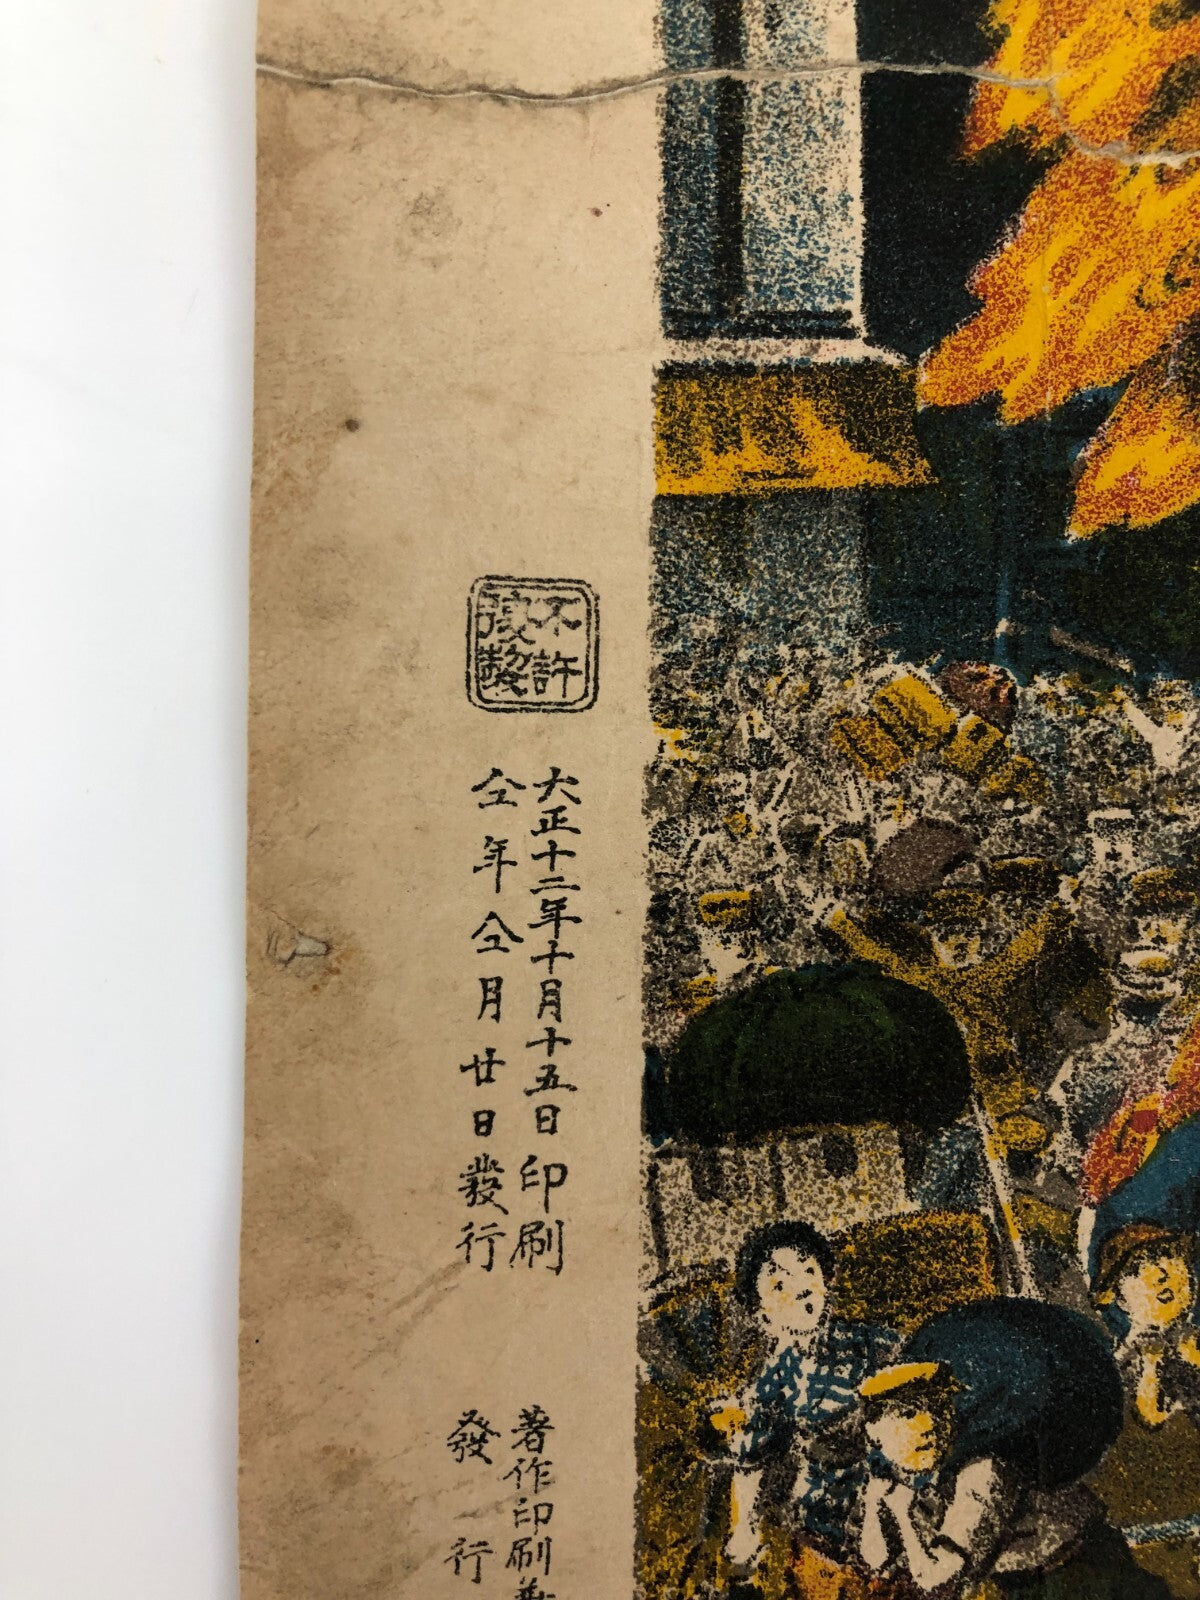 不許
複製
大正十二年十月十五日印刷
仝年仝月廿日發行
著作印刷兼
發行